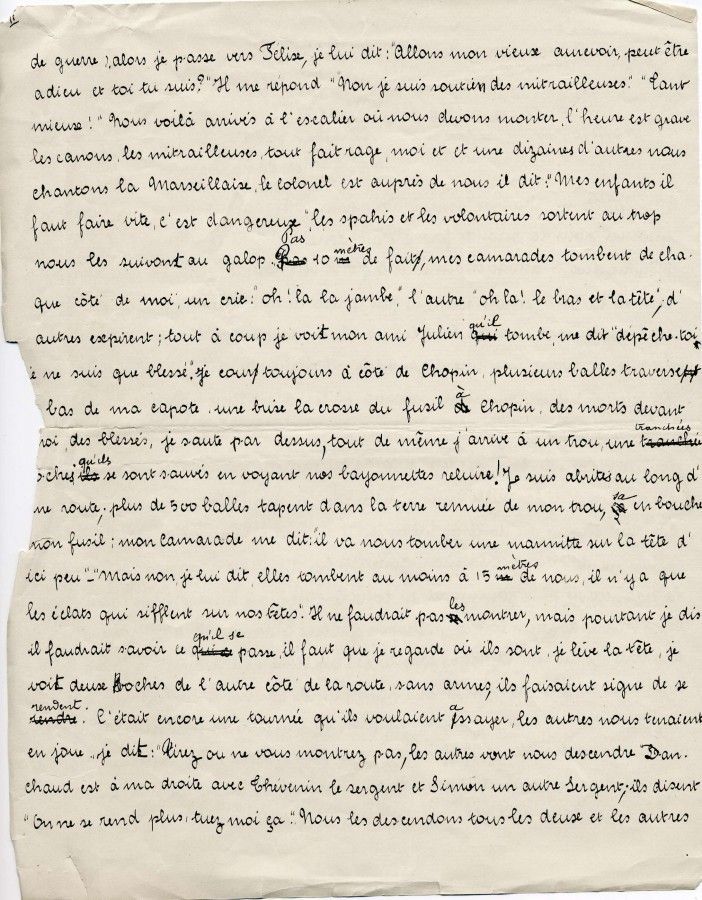 11
de guerre), alors je passe vers Félise, je lui dit : "Allons mon vieux aurevoir, peut être
adieu et toi tu suis?" Il me répond "Non je suis soutien des mitrailleuses." "Tant
mieux!" Nous voilà arrivés à l'escalier où nous devons monter, l'heure est grave
les canons, les mitrailleuses, tout fait rage, moi et et une dizaines d'autres nous
chantons la Marseillaise, le colonel est auprès de nous il dit : "Mes enfants il
faut faire vite, c'est dangereux", les spahis et les volontaires sortent au trop
nous les suivont au galop. Pas 10 mètres de fait, mes camarades tombent de cha-
que côté de moi, un crie : "oh! là la jambe", l'autre "oh la! le bras et la tête", d'
autres expirent ; tout à coup je voit mon ami Julien qu'il tombe, me dit "dépêche-toi
e ne suis que blessé". Je cour toujours à côté de Chopin, plusieurs balles traverse
bas de ma capote, une brise la crosse du fusil à Chopin, des morts devant
moi, des blessés, je saute par dessus, tout de même j'arrive à un trou, une tranchées
oches qu'ils se sont sauvés en voyant nos bayonnettes reluire! Je suis abrités au long d'
une route, plus de 500 balles tapent dans la terre remuée de mon trou, sa en bouche
mon fusil ; mon camarade me dit : "il va nous tomber une marmitte sur la tête d'
ici peu" - "Mais non, je lui dit, elles tombent au moins à 15 mètres de nous, il n'y a que
les éclats qui sifflent sur nos têtes". Il ne faudrait pas les montrer, mais pourtant je dis
il faudrait savoir ce qu'il se passe, il faut que je regarde où ils sont, je lève la tête, je
voit deux Boches de l'autre côté de la route, sans armes, ils faisaient signe de se
rendent. C'était encore une tournée qu'ils voulaient essayer, les autres nous tenaient
en joue, je dit : "Tirez ou ne vous montrez pas, les autres vont nous descendre" Dan-
chaud est à ma droite avec Thévenin le sergent et Simon un autre Sergent, ils disent
"On ne se rend plus, tuez moi ça". Nous les descendons tous les deux et les autres